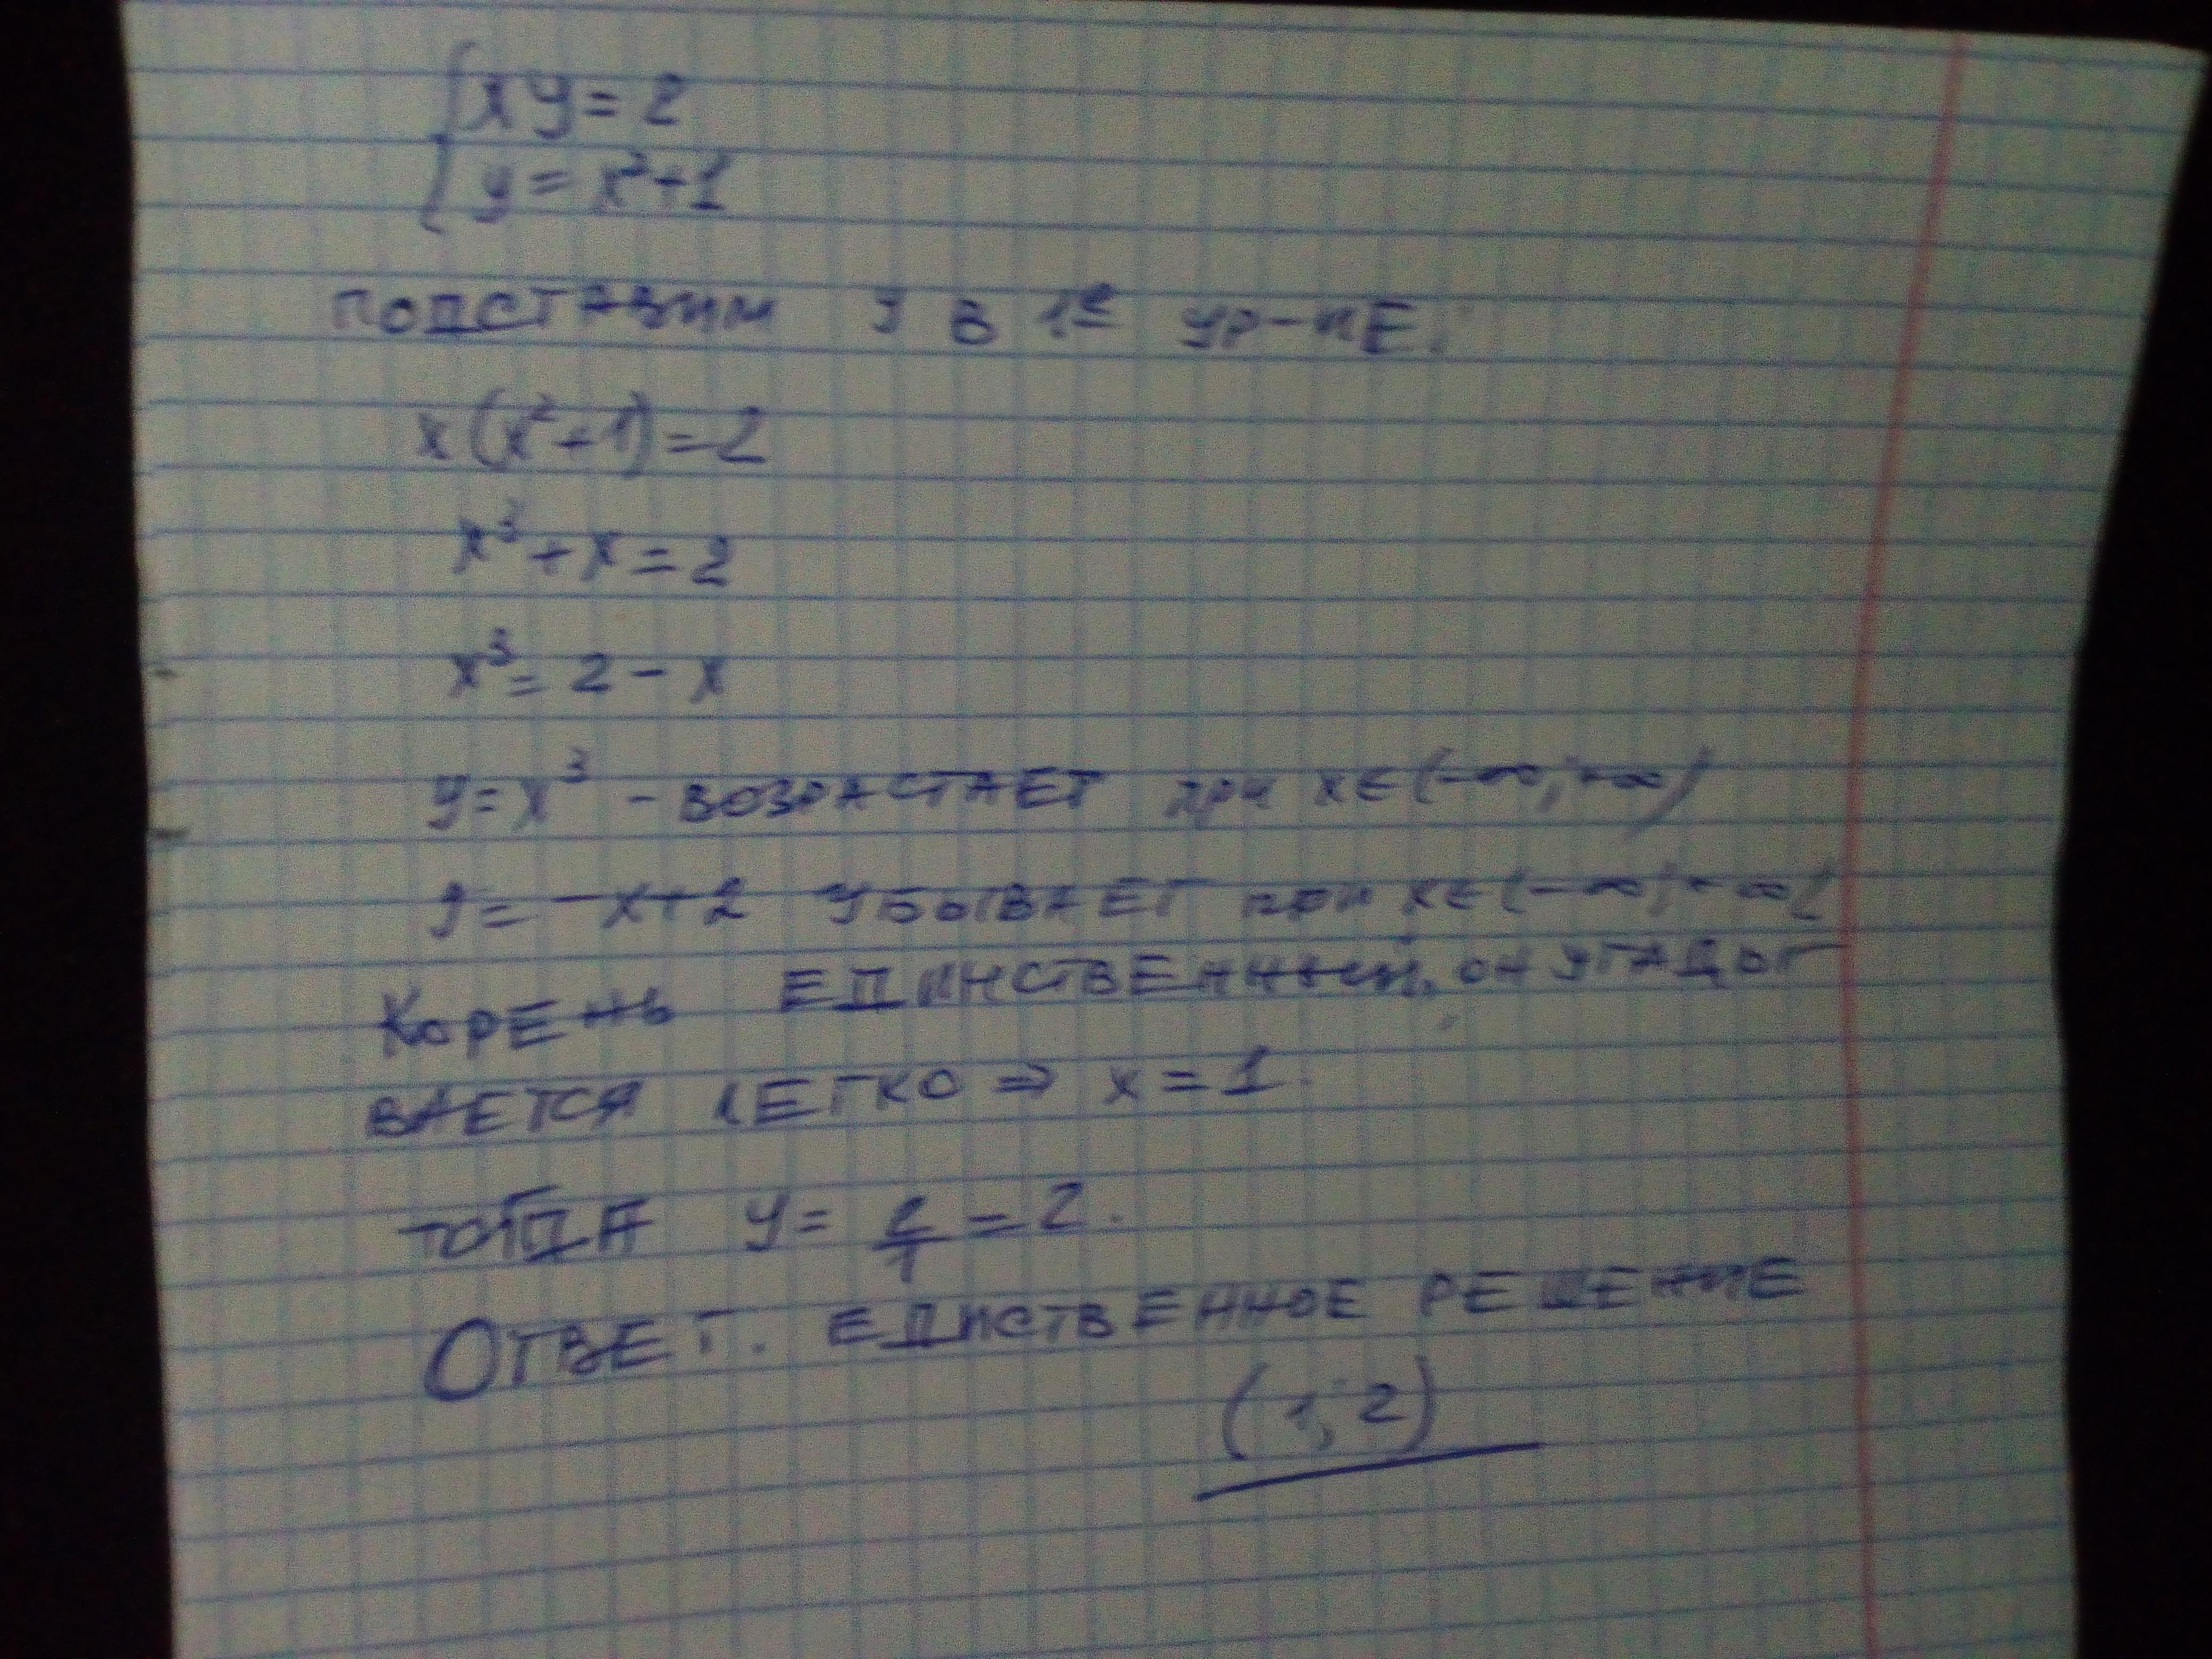 {xy=2
{y=x²+1
подставим y в 1е ур-ие.
x(x²+1)=2
x³+x=2
x³=2-x
y=x³ - возрастает при x∈(-∞;+∞)
y=-x+2 убывает при x∈(-∞;+∞)
Корень единственный, он угадыг
вается легко ⇒ x=1.
тогда y=2/1=2.
Ответ. единственное решение
(1;2)